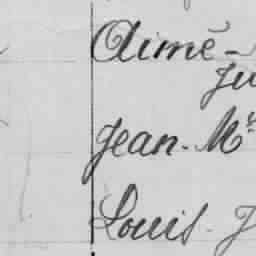 Aimé-
Ju
Jean-Mie
Louis-J